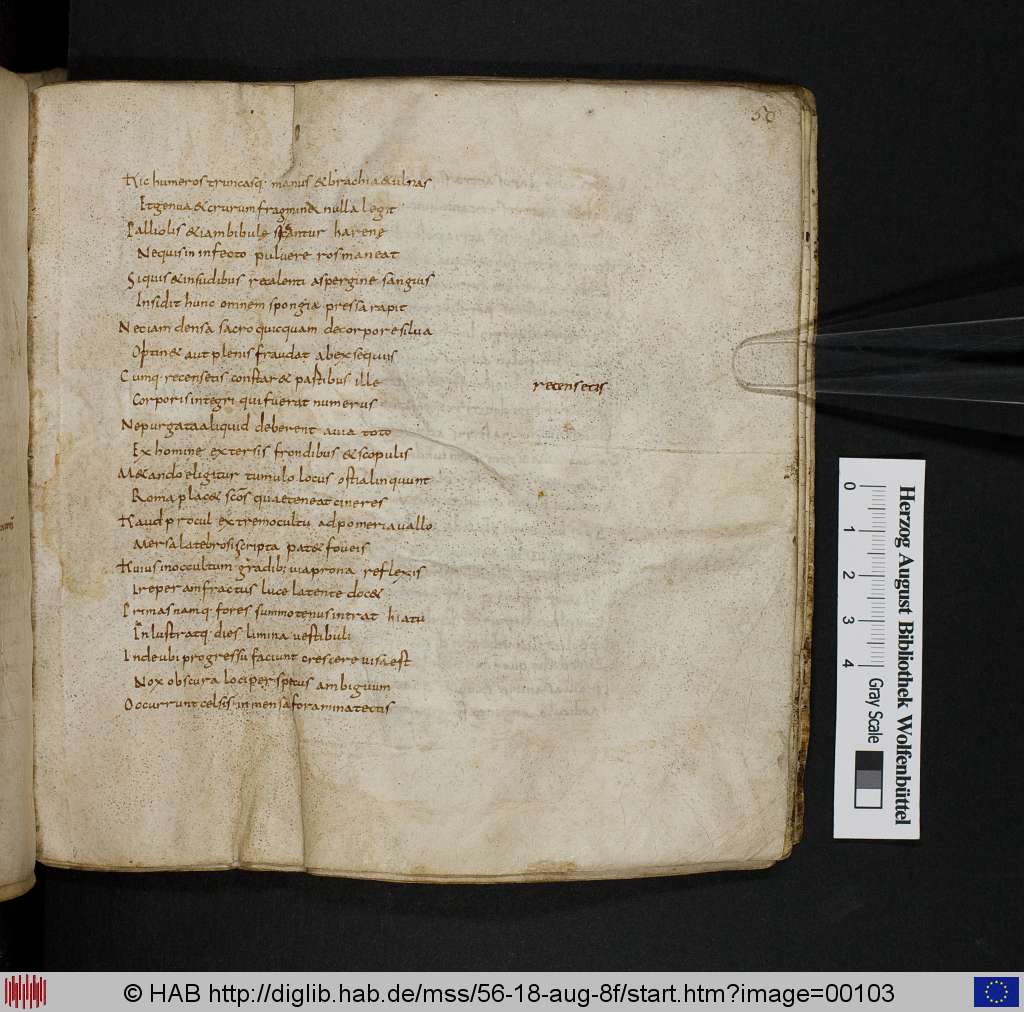 50
Hic humeros truncasq· manus & brachia & ulnas
Et genua & crurum fragmine nulla legit
Palliolis & iam bibule siccantur harene
Nequis in infecto pulvere ros maneat
Siquis & insudibus recalenti aspergine sanguis
Insidit hunc omnem spongia pressa rapit
Nec iam densa sacro quicquam de corpore silva
Optin& aut plenis fraudat ab exsequiis
Cumq· recensetis constar& pastibus ille
recensetis
Corporis integri qui fuerat numerus
Ne purgata aliquid deberent avia toto
Ex homine extersis frondibus & scopulis
M&ando eligitur tumulo locus ostia linquunt
Roma plac& scōs quae teneat cineres
Haud procul extremo cultu ad pomeria vallo
Mersa latebrosis cripta pat& foveis
Huius in occultum gradib; via prona reflexis
Ire per anfractus luce latente doc&
Primas namq· fores summo tenus intrat hiatu
Inlustratq· dies limina vestibuli
Inde ubi progressu faciunt crescere visa est
Nox obscura loci per specus ambiguum
Occurrunt celsis inmensa foramina tectis
0 1 2 3 4
Gray Scale
Herzog August Bibliothek Wolfenbüttel
© HAB http://diglib.hab.de/mss/56-18-aug-8f/start.htm?image=00103